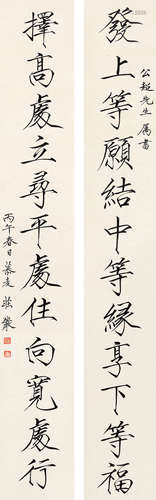 發上等願結中等緣享下等福
公超先生屬書
擇高處立尋平處住向寬處行
丙午春日慕陵莊嚴